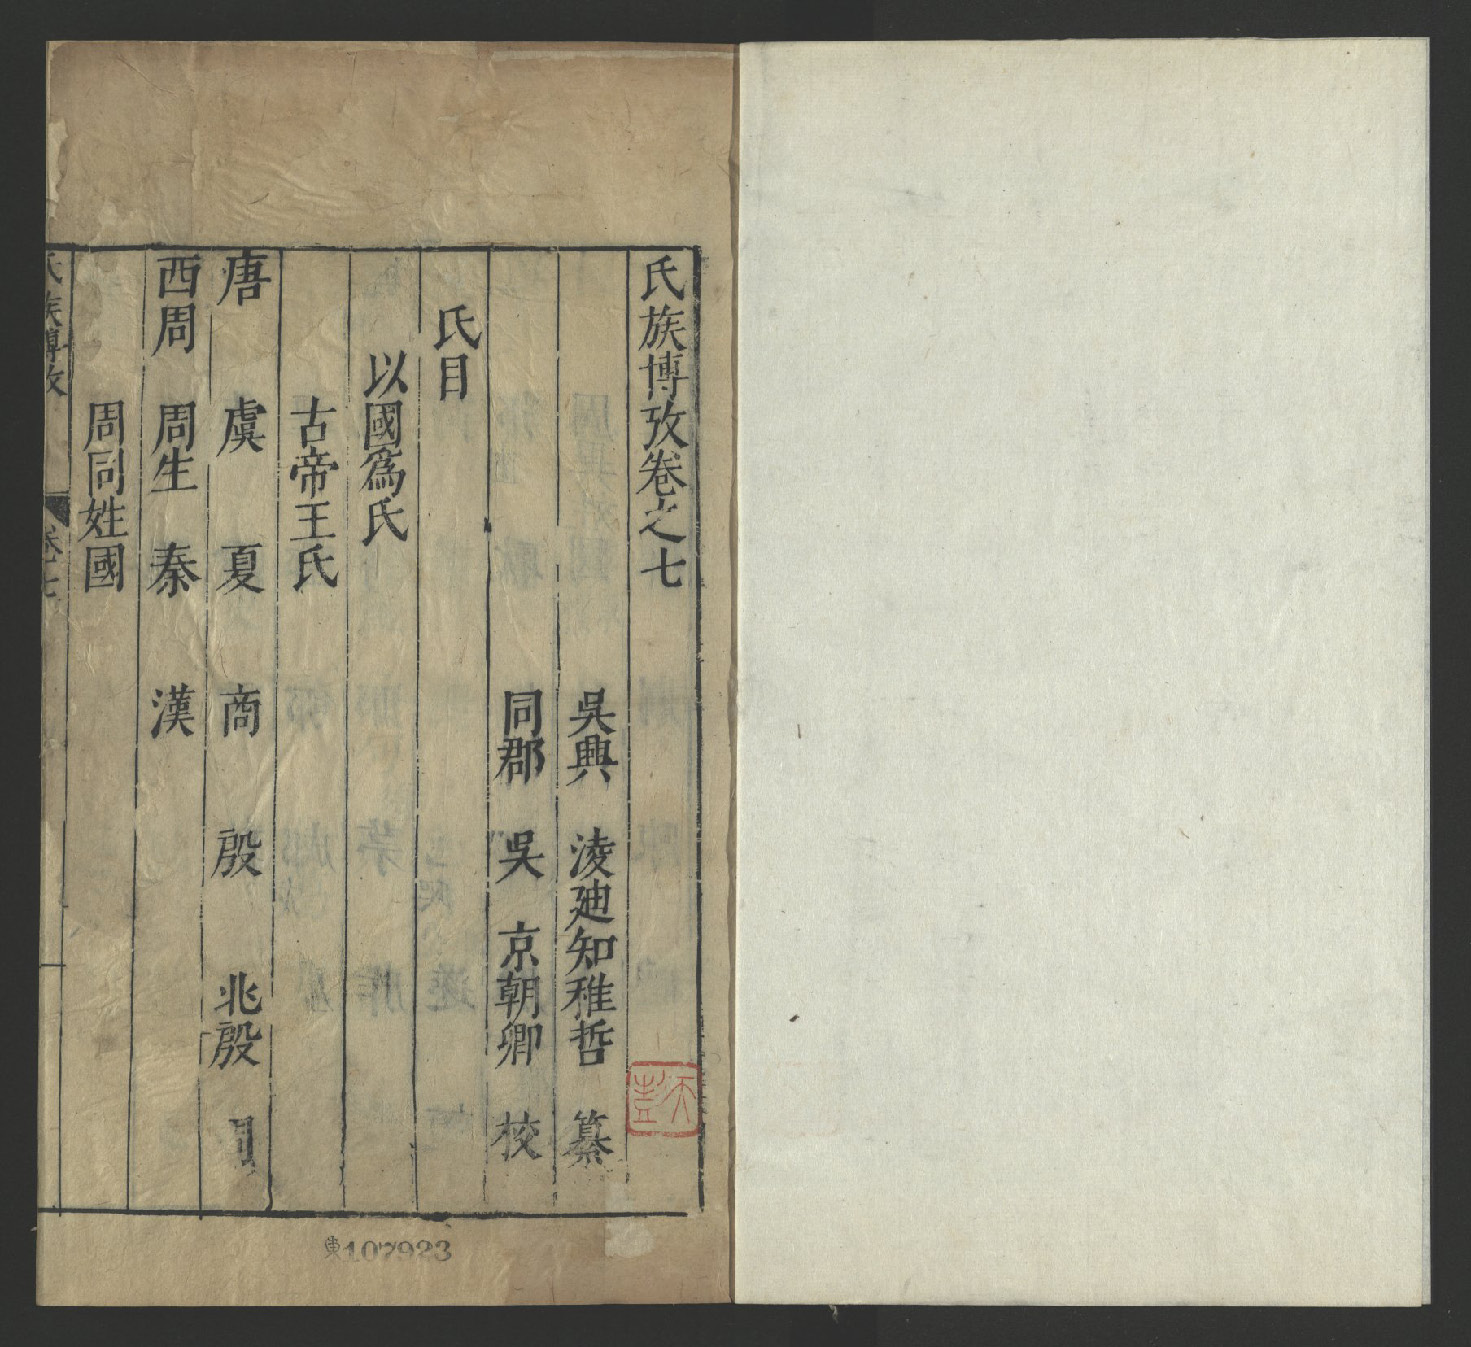 氏族博攷卷之七
吳興 淩迪知稚哲 纂
同郡 吳 京朝卿 校
氏目
以國爲氏
古帝王氏
唐 虞 夏 商 殷 北殷 周
西周 周生 秦 漢
周同姓國
氏族博攷 卷七
東107923